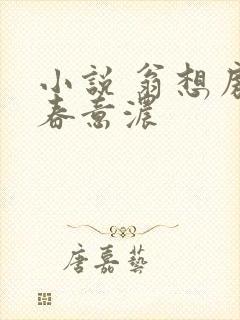 小説 翁想唐
春意濃
唐嘉藝